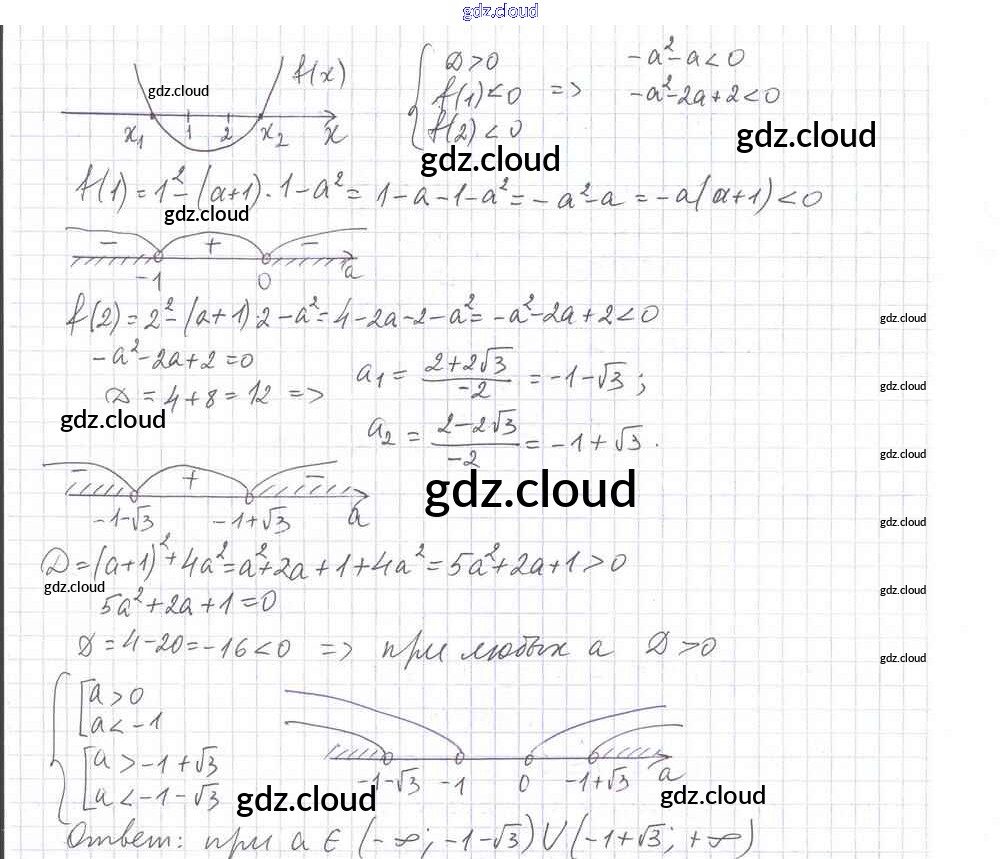 gdz.cloud
f(x)
gdz.cloud
x₁ 1 2 x₂ x
{ D>0
f(1)<0 =>
f(2)<0
-a²-a<0
-a²-2a+2<0
gdz.cloud
gdz.cloud
f(1)=1²-(a+1)·1-a²= 1-a-1-a²=-a²-a=-a(a+1)<0
gdz.cloud
- + -
-1 0 a
f(2)=2²-(a+1)·2-a²=4-2a-2-a²=-a²-2a+2<0
gdz.cloud
-a²-2a+2=0
D=4+8=12 =>
a₁=(2+2√3)/(-2)=-1-√3;
gdz.cloud
gdz.cloud
a₂=(2-2√3)/(-2)=-1+√3.
gdz.cloud
- + -
gdz.cloud
-1-√3 -1+√3 a
gdz.cloud
D=(a+1)²+4a²=a²+2a+1+4a²=5a²+2a+1>0
gdz.cloud
gdz.cloud
5a²+2a+1=0
D=4-20=-16<0 => при любых a D>0
gdz.cloud
{ [ a>0
a<-1
[ a>-1+√3
a<-1-√3
-1-√3 -1 0 -1+√3 a
gdz.cloud
gdz.cloud
Ответ: при a∈(-∞; -1-√3)∪(-1+√3; +∞)